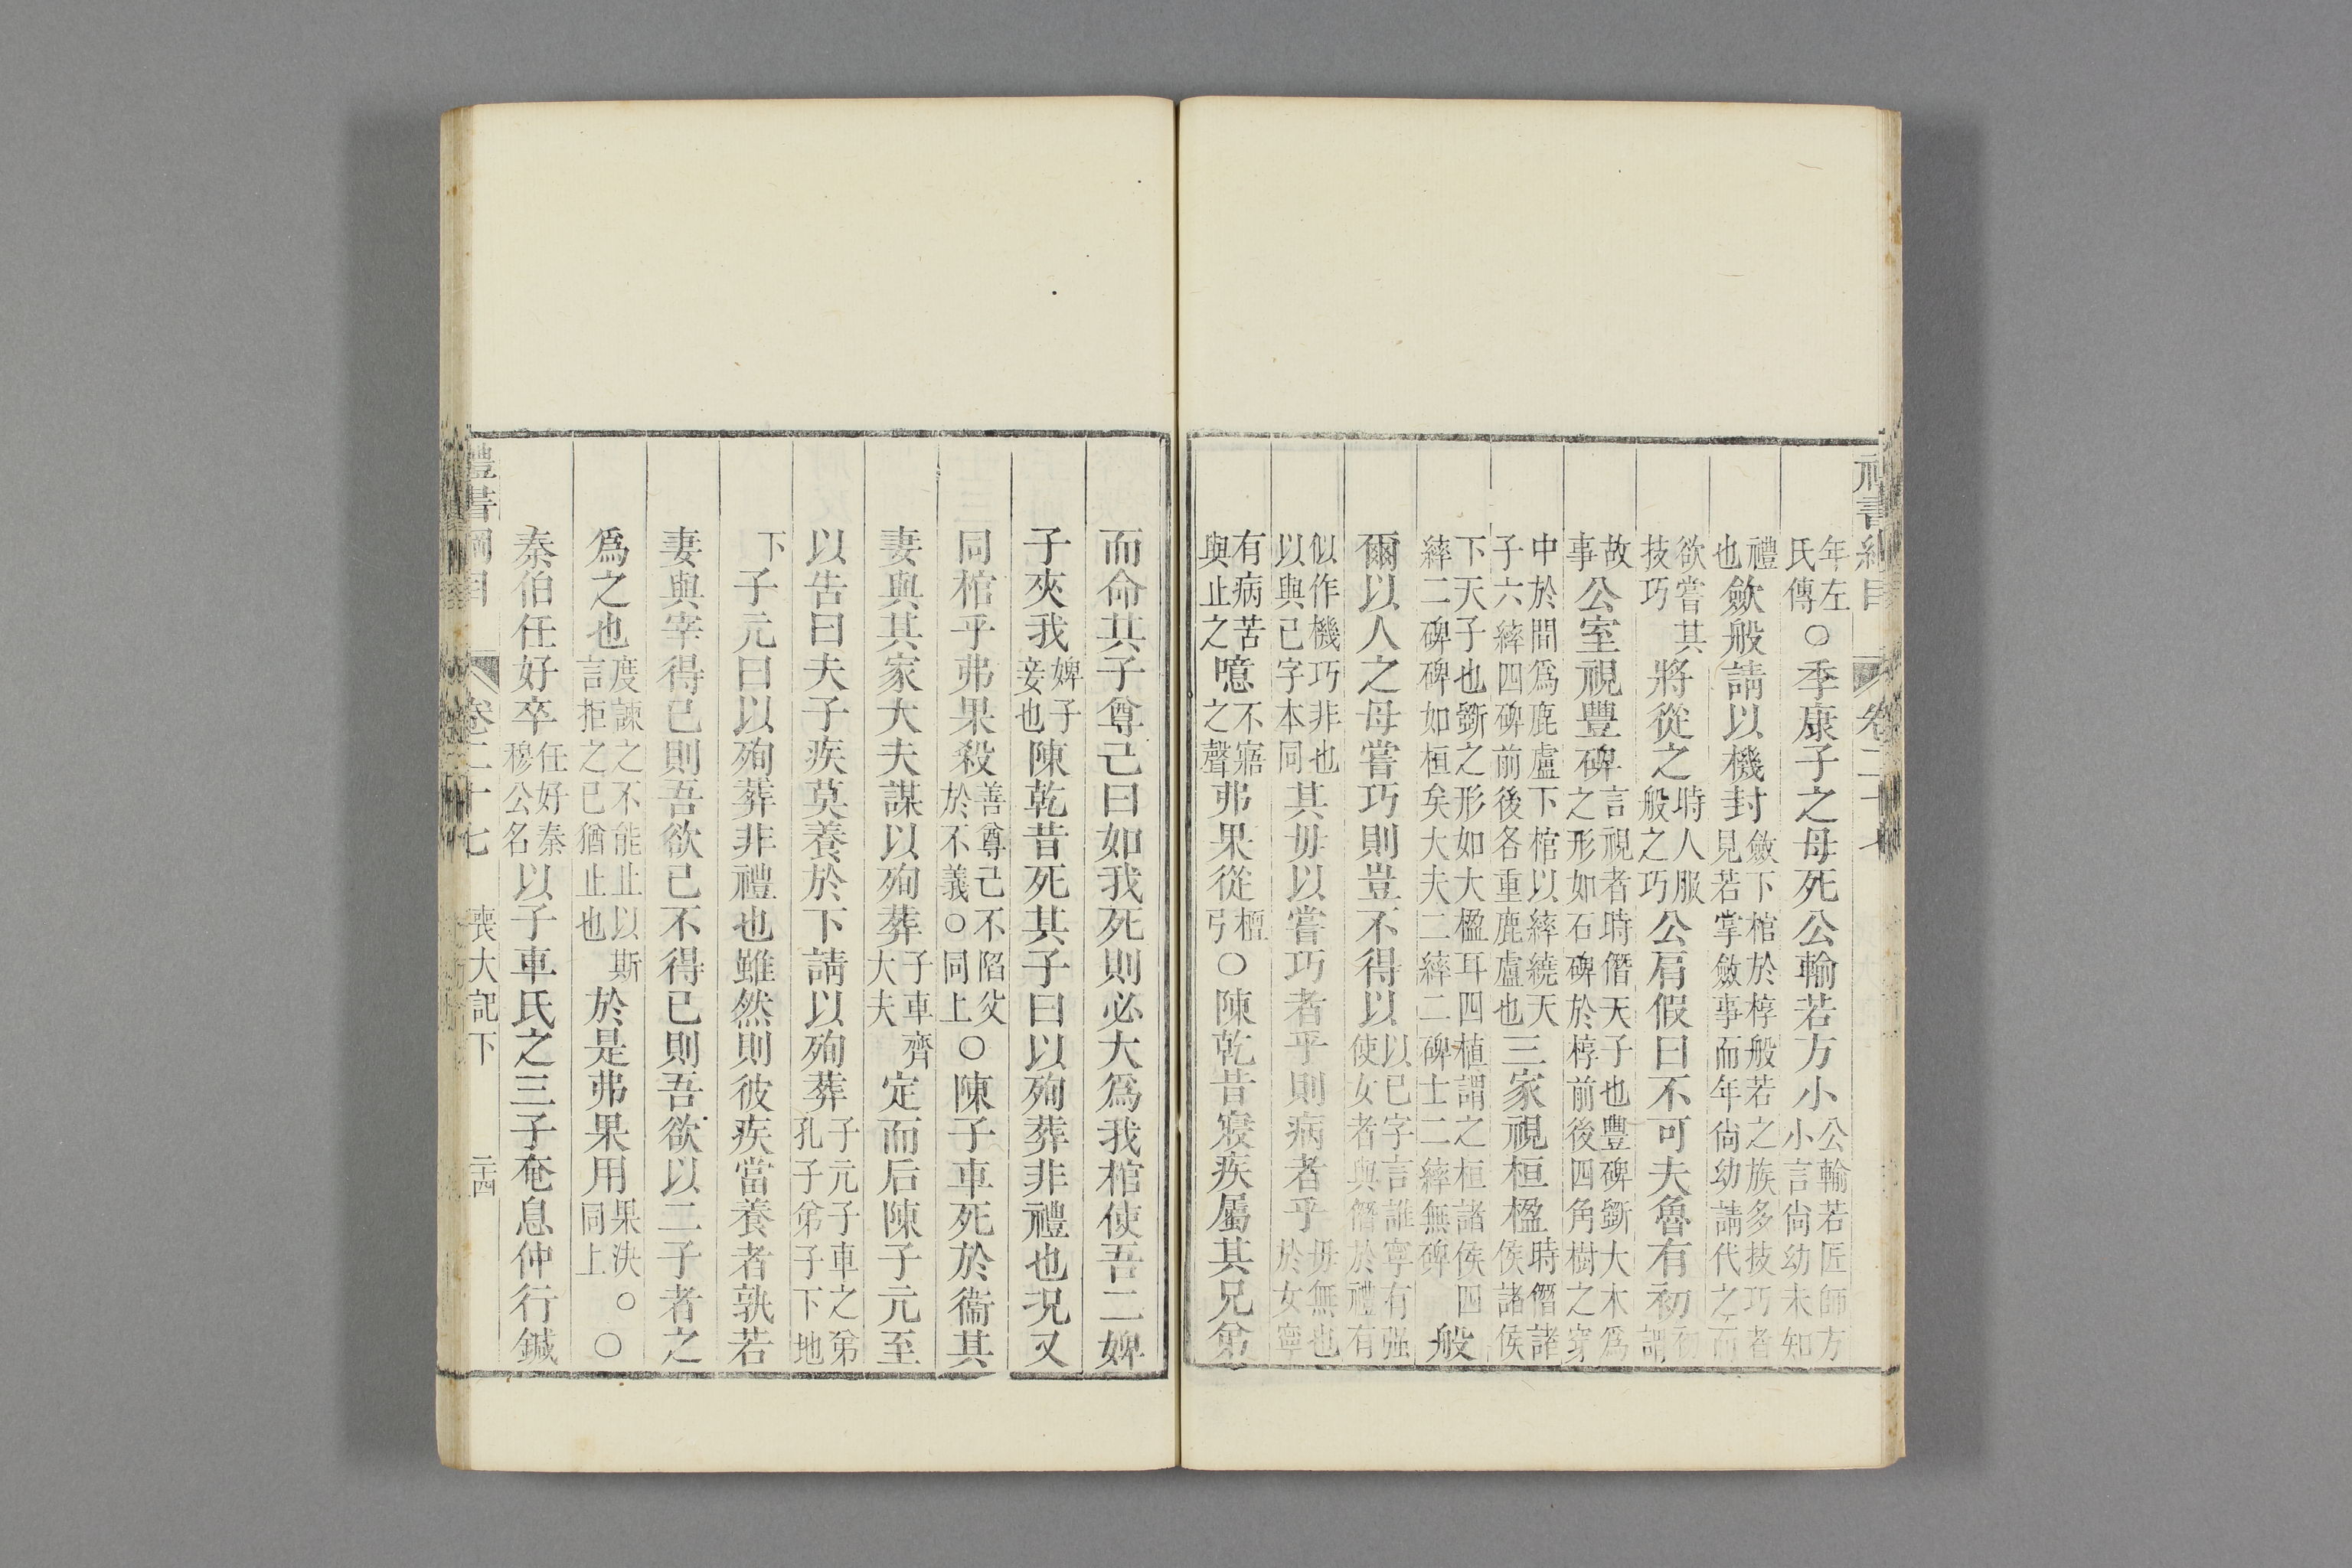 禮書綱目 卷二十七
年左氏傳○季康子之母死公輸若方小公輸若匠師方小言尚幼未知
禮也歛般請以機封斂下棺於椁般若之族多技巧者見若掌斂事而年尚幼請代之而
欲嘗其技巧將從之時人服般之巧公肩假曰不可夫魯有初初謂
故事公室視豐碑言視者時僭天子也豐碑斵大木爲之形如石碑於椁前後四角樹之穿
中於間爲鹿盧下棺以繂繞天子六繂四碑前後各重鹿盧也三家視桓楹時僭諸侯諸侯
下天子也斵之形如大楹耳四植謂之桓諸侯四繂二碑碑如桓矣大夫二繂二碑士二繂無碑般
爾以人之母嘗巧則豈不得以以已字言誰寧有强使女者與僭於禮有
似作機巧非也以與已字本同其毋以嘗巧者乎則病者乎毋無也於女寧
有病苦與止之噫不寤之聲弗果從檀弓○陳乾昔寢疾屬其兄弟
而命其子尊己曰如我死則必大爲我棺使吾二婢
子夾我婢子妾也陳乾昔死其子曰以殉葬非禮也況又
同棺乎弗果殺善尊己不陷父於不義○同上○陳子車死於衞其
妻與其家大夫謀以殉葬子車齊大夫定而后陳子元至
以告曰夫子疾莫養於下請以殉葬子元子車之弟孔子弟子下地
下子元曰以殉葬非禮也雖然則彼疾當養者孰若
妻與宰得已則吾欲已不得已則吾欲以二子者之
爲之也度諫之不能止以斯言拒之已猶止也於是弗果用果決○同上○
秦伯任好卒任好秦穆公名以子車氏之三子奄息仲行鍼
禮書綱目 卷二十七 喪大記下 二十四